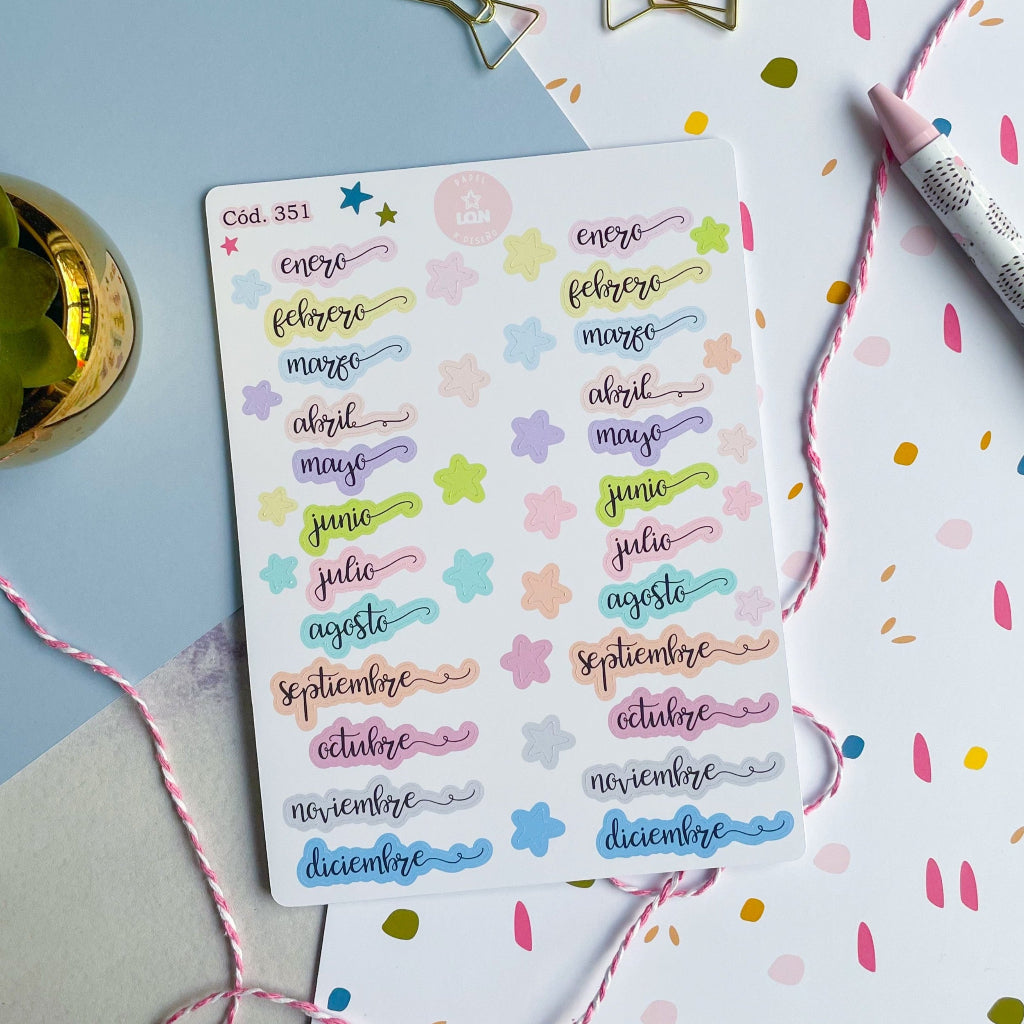 Cód. 351
PAPEL
LQN
& DISEÑO
enero
febrero
marzo
abril
mayo
junio
julio
agosto
septiembre
octubre
noviembre
diciembre
enero
febrero
marzo
abril
mayo
junio
julio
agosto
septiembre
octubre
noviembre
diciembre